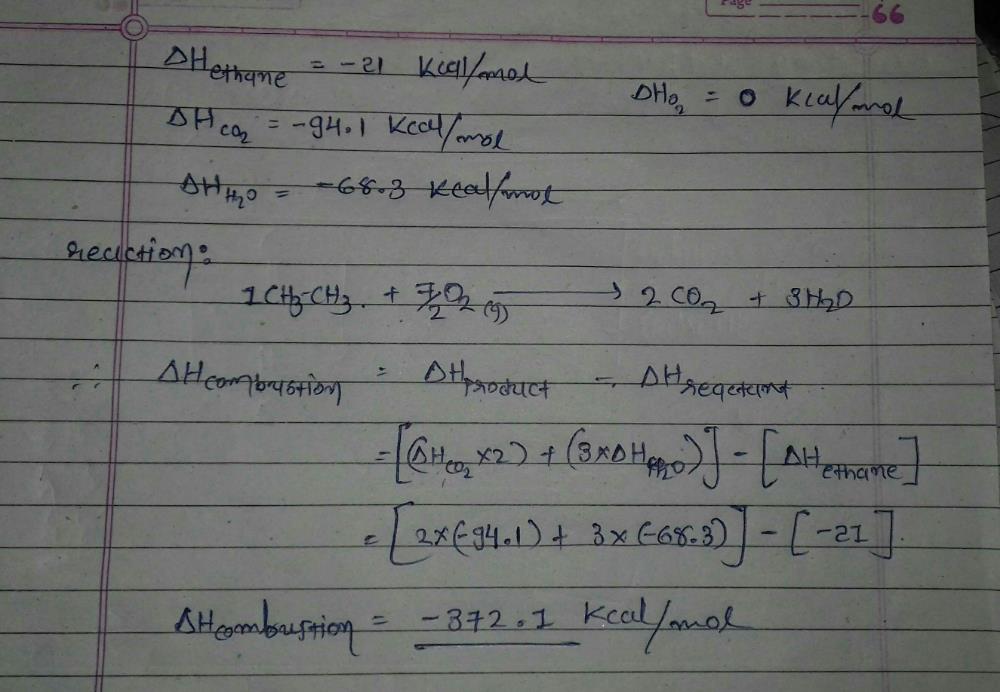 Page 66
ΔHethane = -21 Kcal/mol
ΔHO2 = 0 Kcal/mol
ΔHCO2 = -94.1 Kcal/mol
ΔHH2O = -68.3 Kcal/mol
reaction:
1CH3-CH3. + 7/2 O2 (g) ⟶ 2 CO2 + 3H2O
∴ ΔHcombustion = ΔHproduct - ΔHreactant
= [(ΔHCO2 x2) + (3xΔHH2O)] - [ΔHethane]
= [2x(-94.1) + 3x(-68.3)] - [-21].
ΔHcombustion = -372.1 Kcal/mol